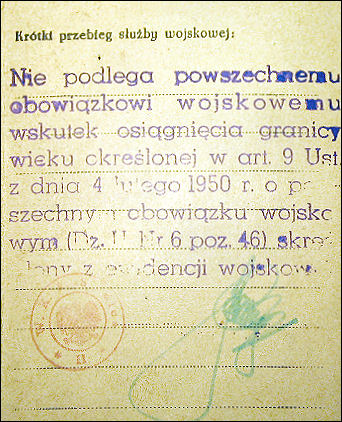 Krótki przebieg służby wojskowej:
Nie podlega powszechnemu
obowiązkowi wojskowemu
wskutek osiągnięcia granicy
wieku określonej w art. 9 Ust.
z dnia 4 lutego 1950 r. o po
szechnym obowiązku wojsko
wym (Dz. U. Nr 6 poz. 46) skreś
lony z ewidencji wojskowej